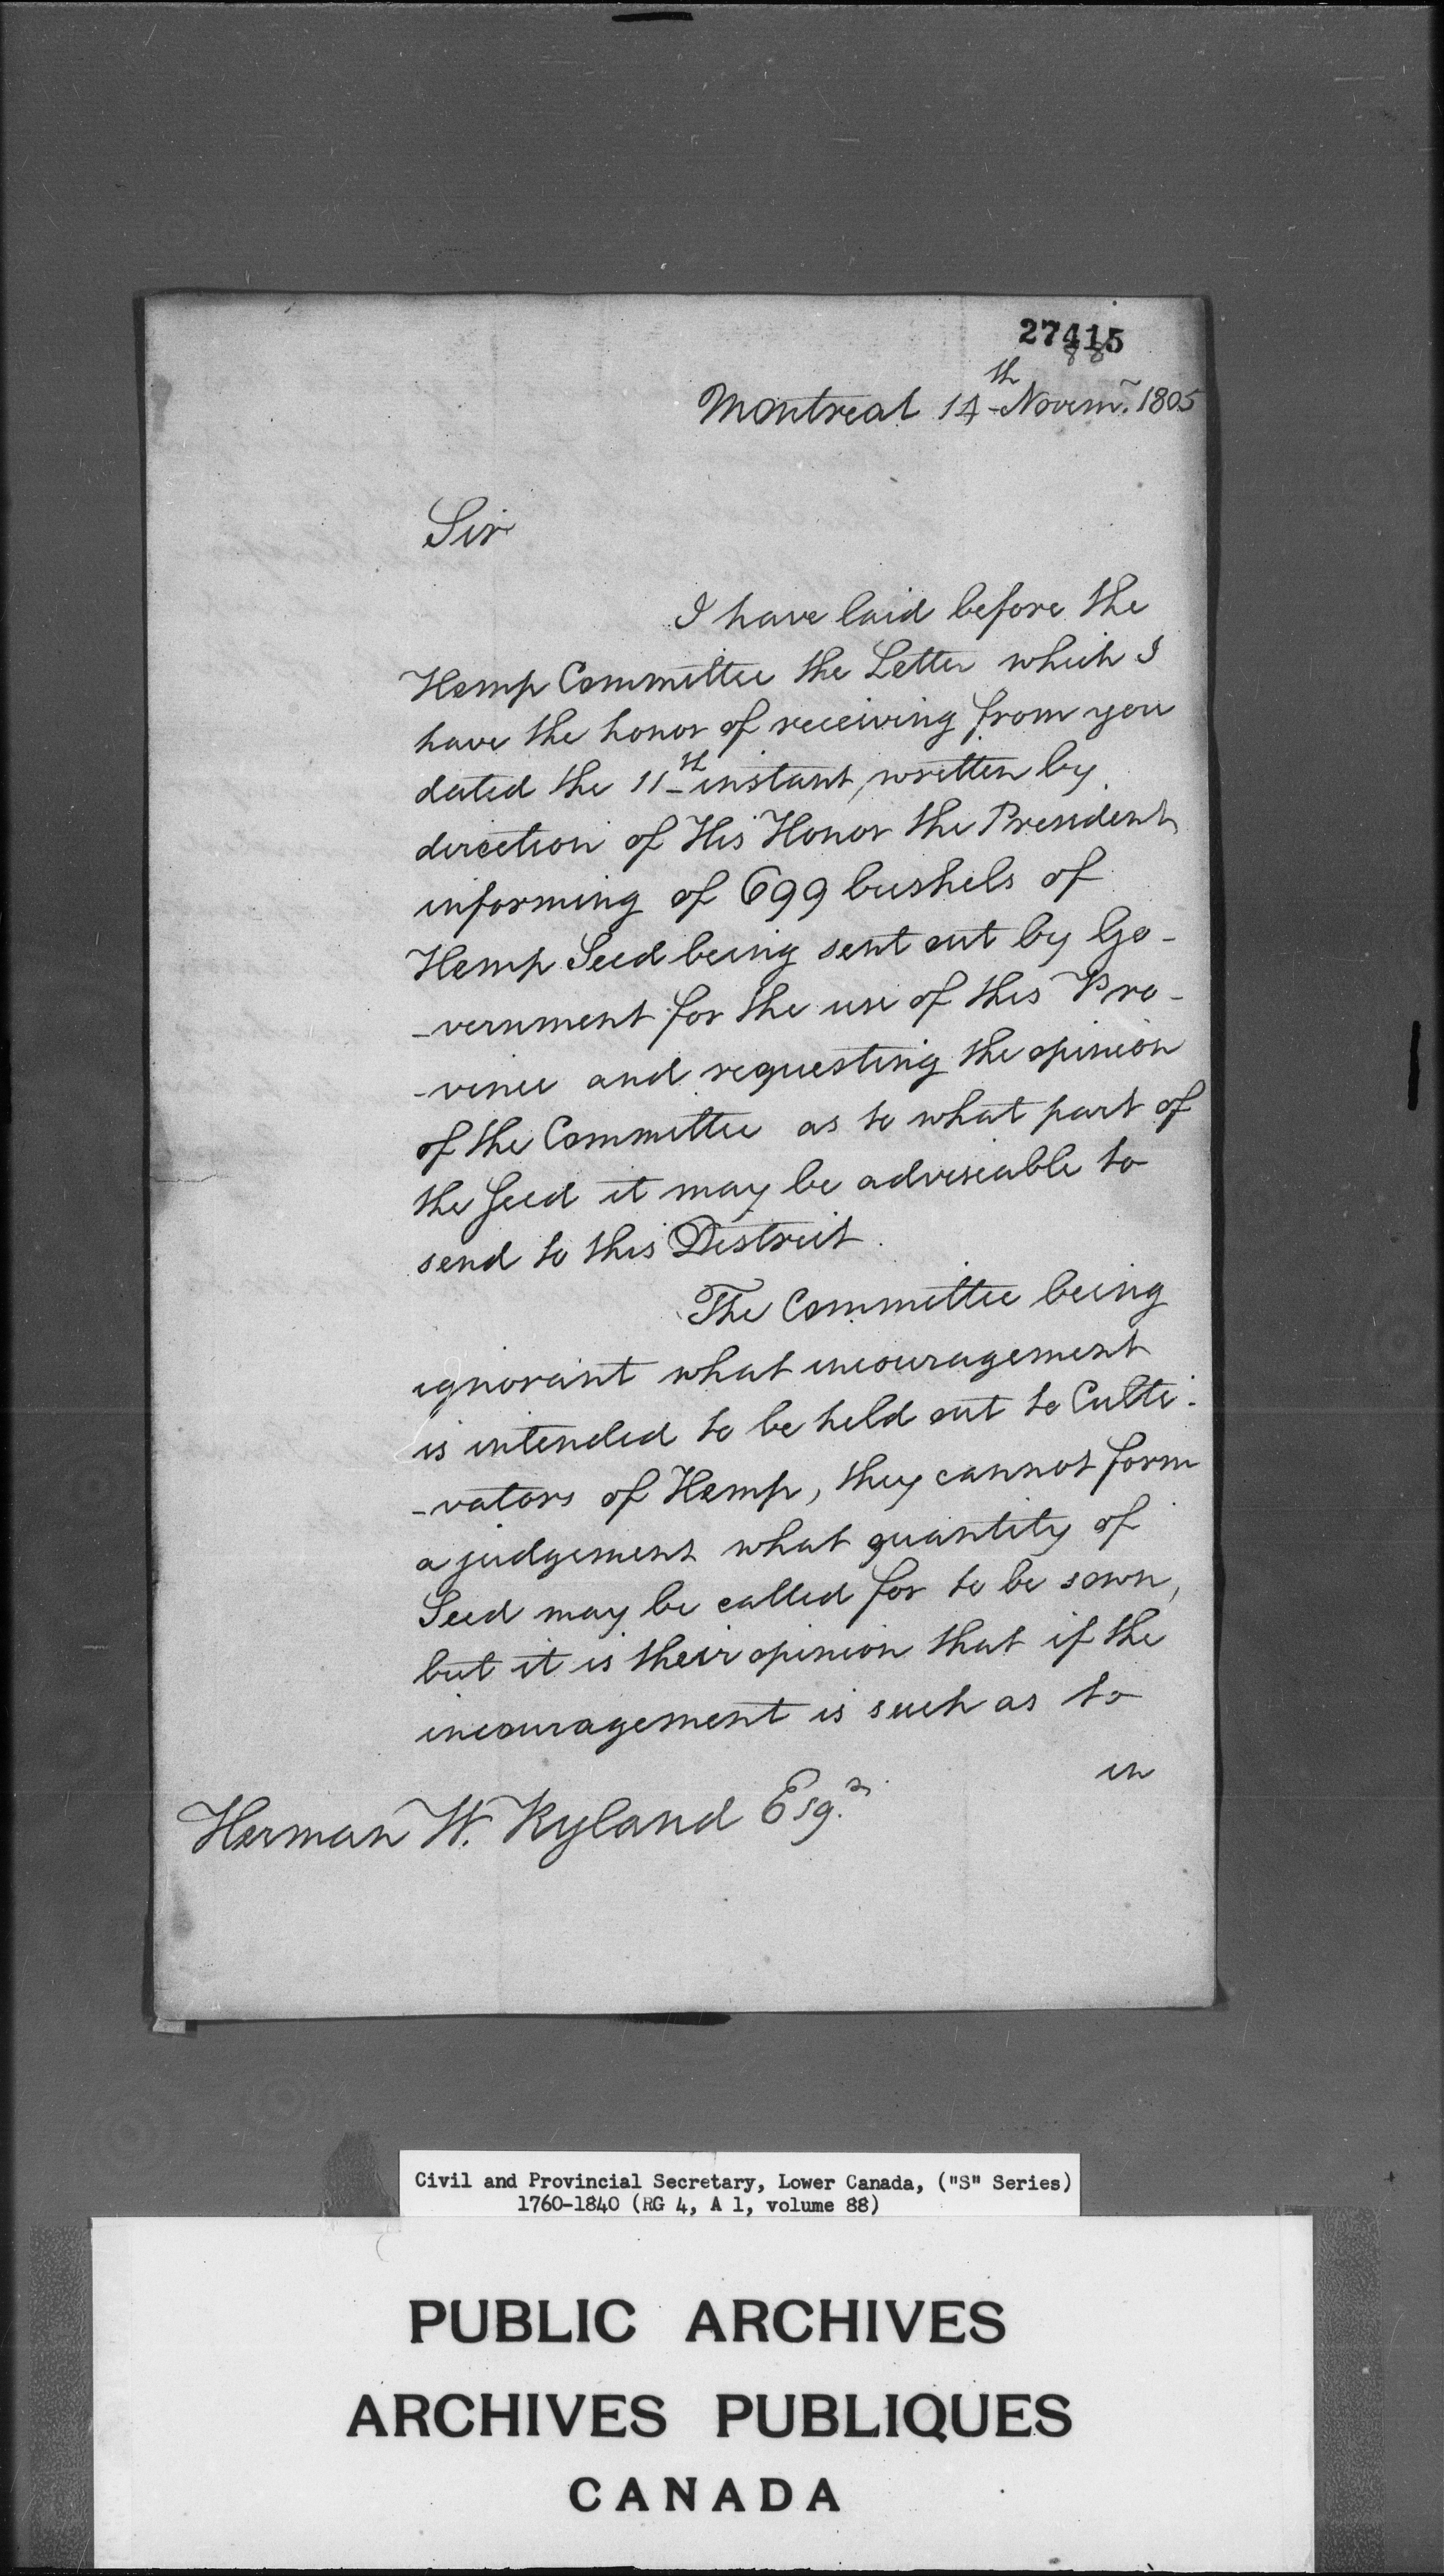 27415
88
Montreal 14th Novemr. 1805
Sir
I have laid before the
Hemp Committee the Letter which I
have the honor of receiving from you
dated the 11th instant, written by
direction of His Honor the President
informing of 699 bushels of
Hemp Seed being sent out by Go-
-vernment for the use of this Pro-
-vince and requesting the opinion
of the Committee as to what part of
the Seed it may be adviseable to
send to this District.
The Committee being
ignorant what incouragement
is intended to be held out to Culti-
-vators of Hemp, they cannot form
a judgement what quantity of
Seed may be called for to be sown,
but it is their opinion that if the
incouragement is such as to
in
Herman W. Ryland Esqr.
Civil and Provincial Secretary, Lower Canada, ("S" Series)
1760-1840 (RG 4, A 1, volume 88)
PUBLIC ARCHIVES
ARCHIVES PUBLIQUES
CANADA